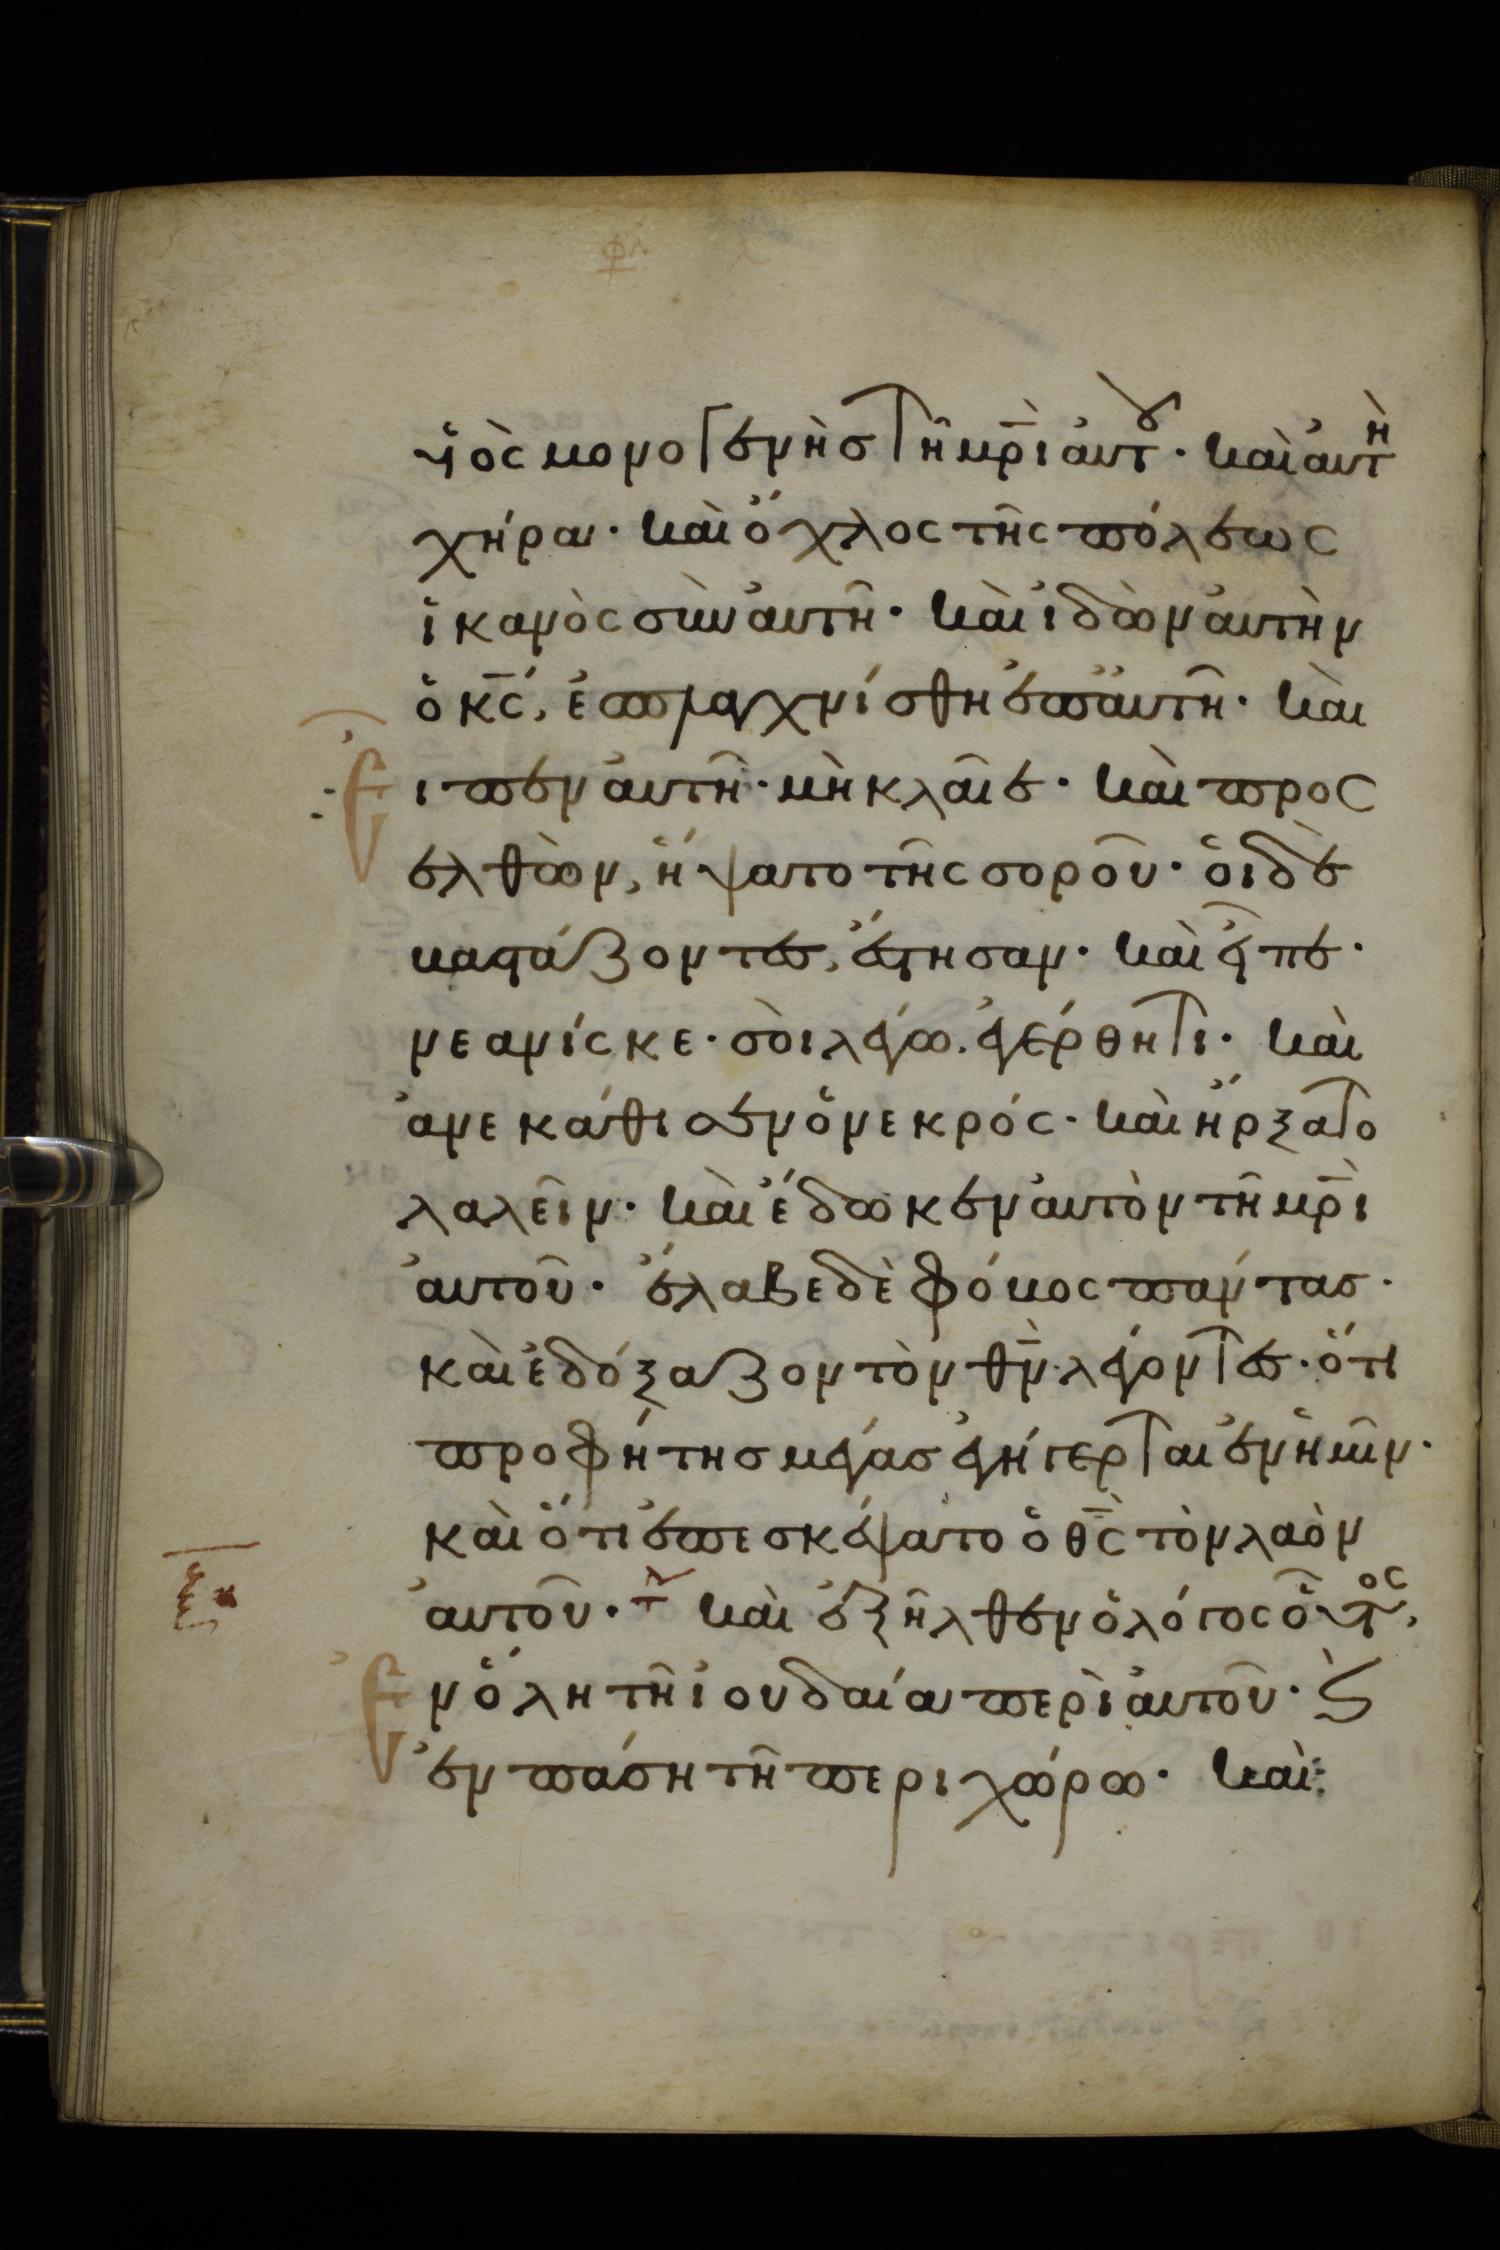 ὑϊὸς μονογενὴς τῆ μρ̅ὶ αὐτοῦ· καὶ αὐτὴ
χήρα· καὶ ὄχλος τῆς πόλεως
ἱκανὸς σὺν αὐτῆ· καὶ ἰδὼν αὐτὴν
ὁ κ̅ς̅, ἐσπλαγχνίσθη ἐπ' αὐτῆ· καὶ
εἶπεν αὐτῆ· μὴ κλαῖε· καὶ προς
ελθὼν, ἥψατο τῆς σοροῦ· οἱ δὲ
βαστάζοντες, ἔστησαν· καὶ εἶπε·
νεανίσκε· σοὶ λέγω. ἐγέρθητι· καὶ
ἀνεκάθισεν ὁ νεκρός· καὶ ἤρξατο
λαλεῖν· καὶ ἔδωκεν αὐτὸν τῆ μρ̅ὶ
αὐτοῦ· ἔλαβε δὲ φόβος πάντας·
καὶ ἐδόξαζον τὸν θ̅ν̅· λέγοντες· ὅτι
προφήτης μέγας ἐγήγερται ἐν ἡμῖν·
καὶ ὅτι ἐπεσκέψατο ὁ θ̅ς̅ τὸν λαὸν
αὐτοῦ· καὶ ἐξῆλθεν ὁ λόγος οὗτος,
ἐν ὅλη τῆ ἰουδαία περὶ αὐτοῦ· ϗ
ἐν πάση τῆ περιχώρω· καὶ: